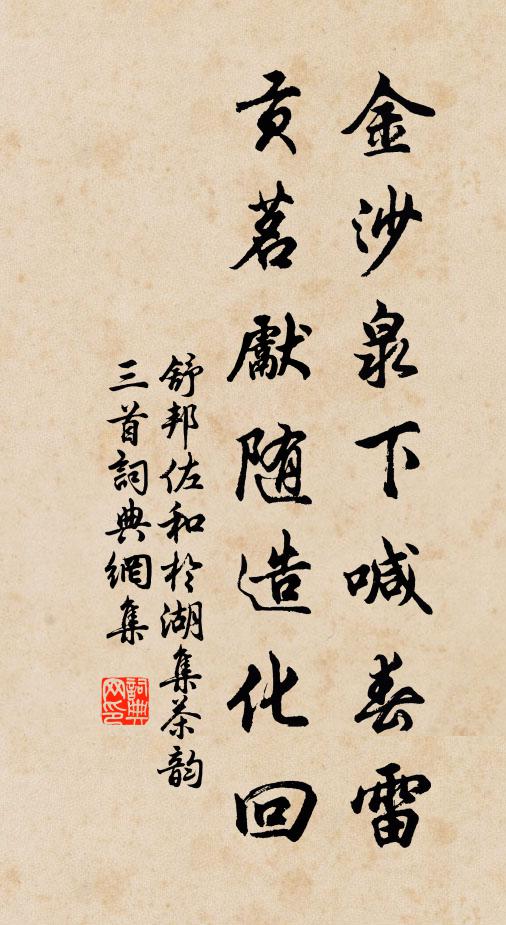 金沙泉下喊春雷
貢茗獻随造化回
舒邦佐和於湖集茶韵
三首詞典網集
詞典網印